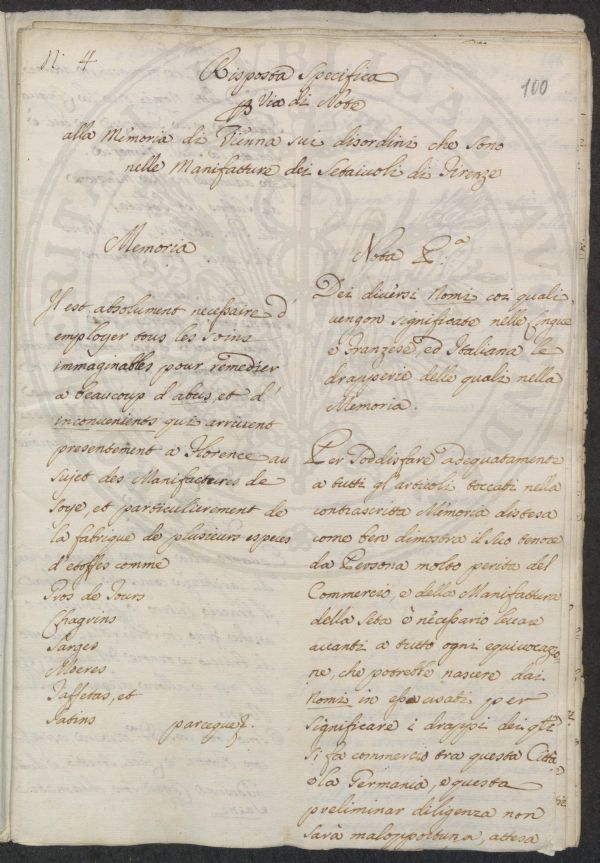 N. 4
100
Risposta Specifica
p Via di Note
alla Memoria di Vienna sui disordini che sono
nelle Manifatture dei Setaiuoli di Firenze
Memoria
Il est absolument necessaire d'
employer tous les soins
immaginables pour remedier
a beaucoup d'abus, et d'
inconvenients qui arrivent
presentement a Florence au
sujet des Manifactures de
soye et particulierement de
la fabrique de plusieurs especes
d'etoffes comme
Gros de Tours
Chagrins
Sarges
Moeres
Taffetas, et
Satins parceque
Nota P.a
Dei diversi Nomi coi quali
vengon significate nelle Lingue
e Franzese ed Italiana le
drapperie delle quali nella
Memoria.
Per soddisfare adeguatamente
a tutti gl'articoli toccati nella
contrascritta Memoria distesa
come ben dimostra il suo tenore
da Persona molto perita del
Commercio, e della Manifattura
della Seta è necessario levare
avanti a tutto ogni equivocazio
ne, che potrebbe nascere dai
Nomi in essa usati per
significare i drappi dei qli
si fa commercio tra questa Città
e la Germania, e questa
preliminar diligenza non
sarà malopportuna, attesa